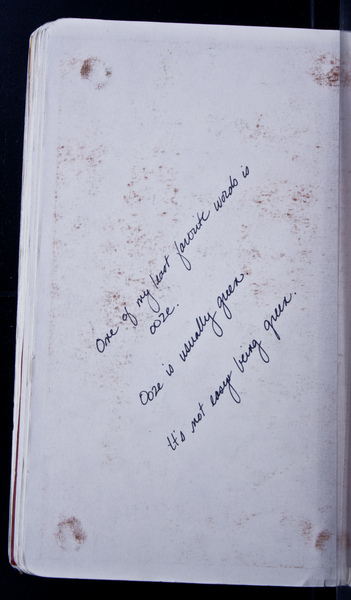 One of my least favorite words is
ooze.
Ooze is usually green.
It's not easy being green.